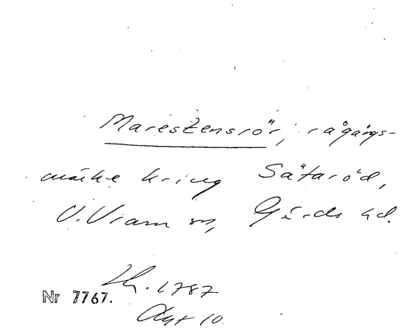 Marestensrör, rågångs-
märke kring Sätaröd,
V. Vram sn, Gärds hd.
Lh. 1787
Nr 7767.
Akt 10